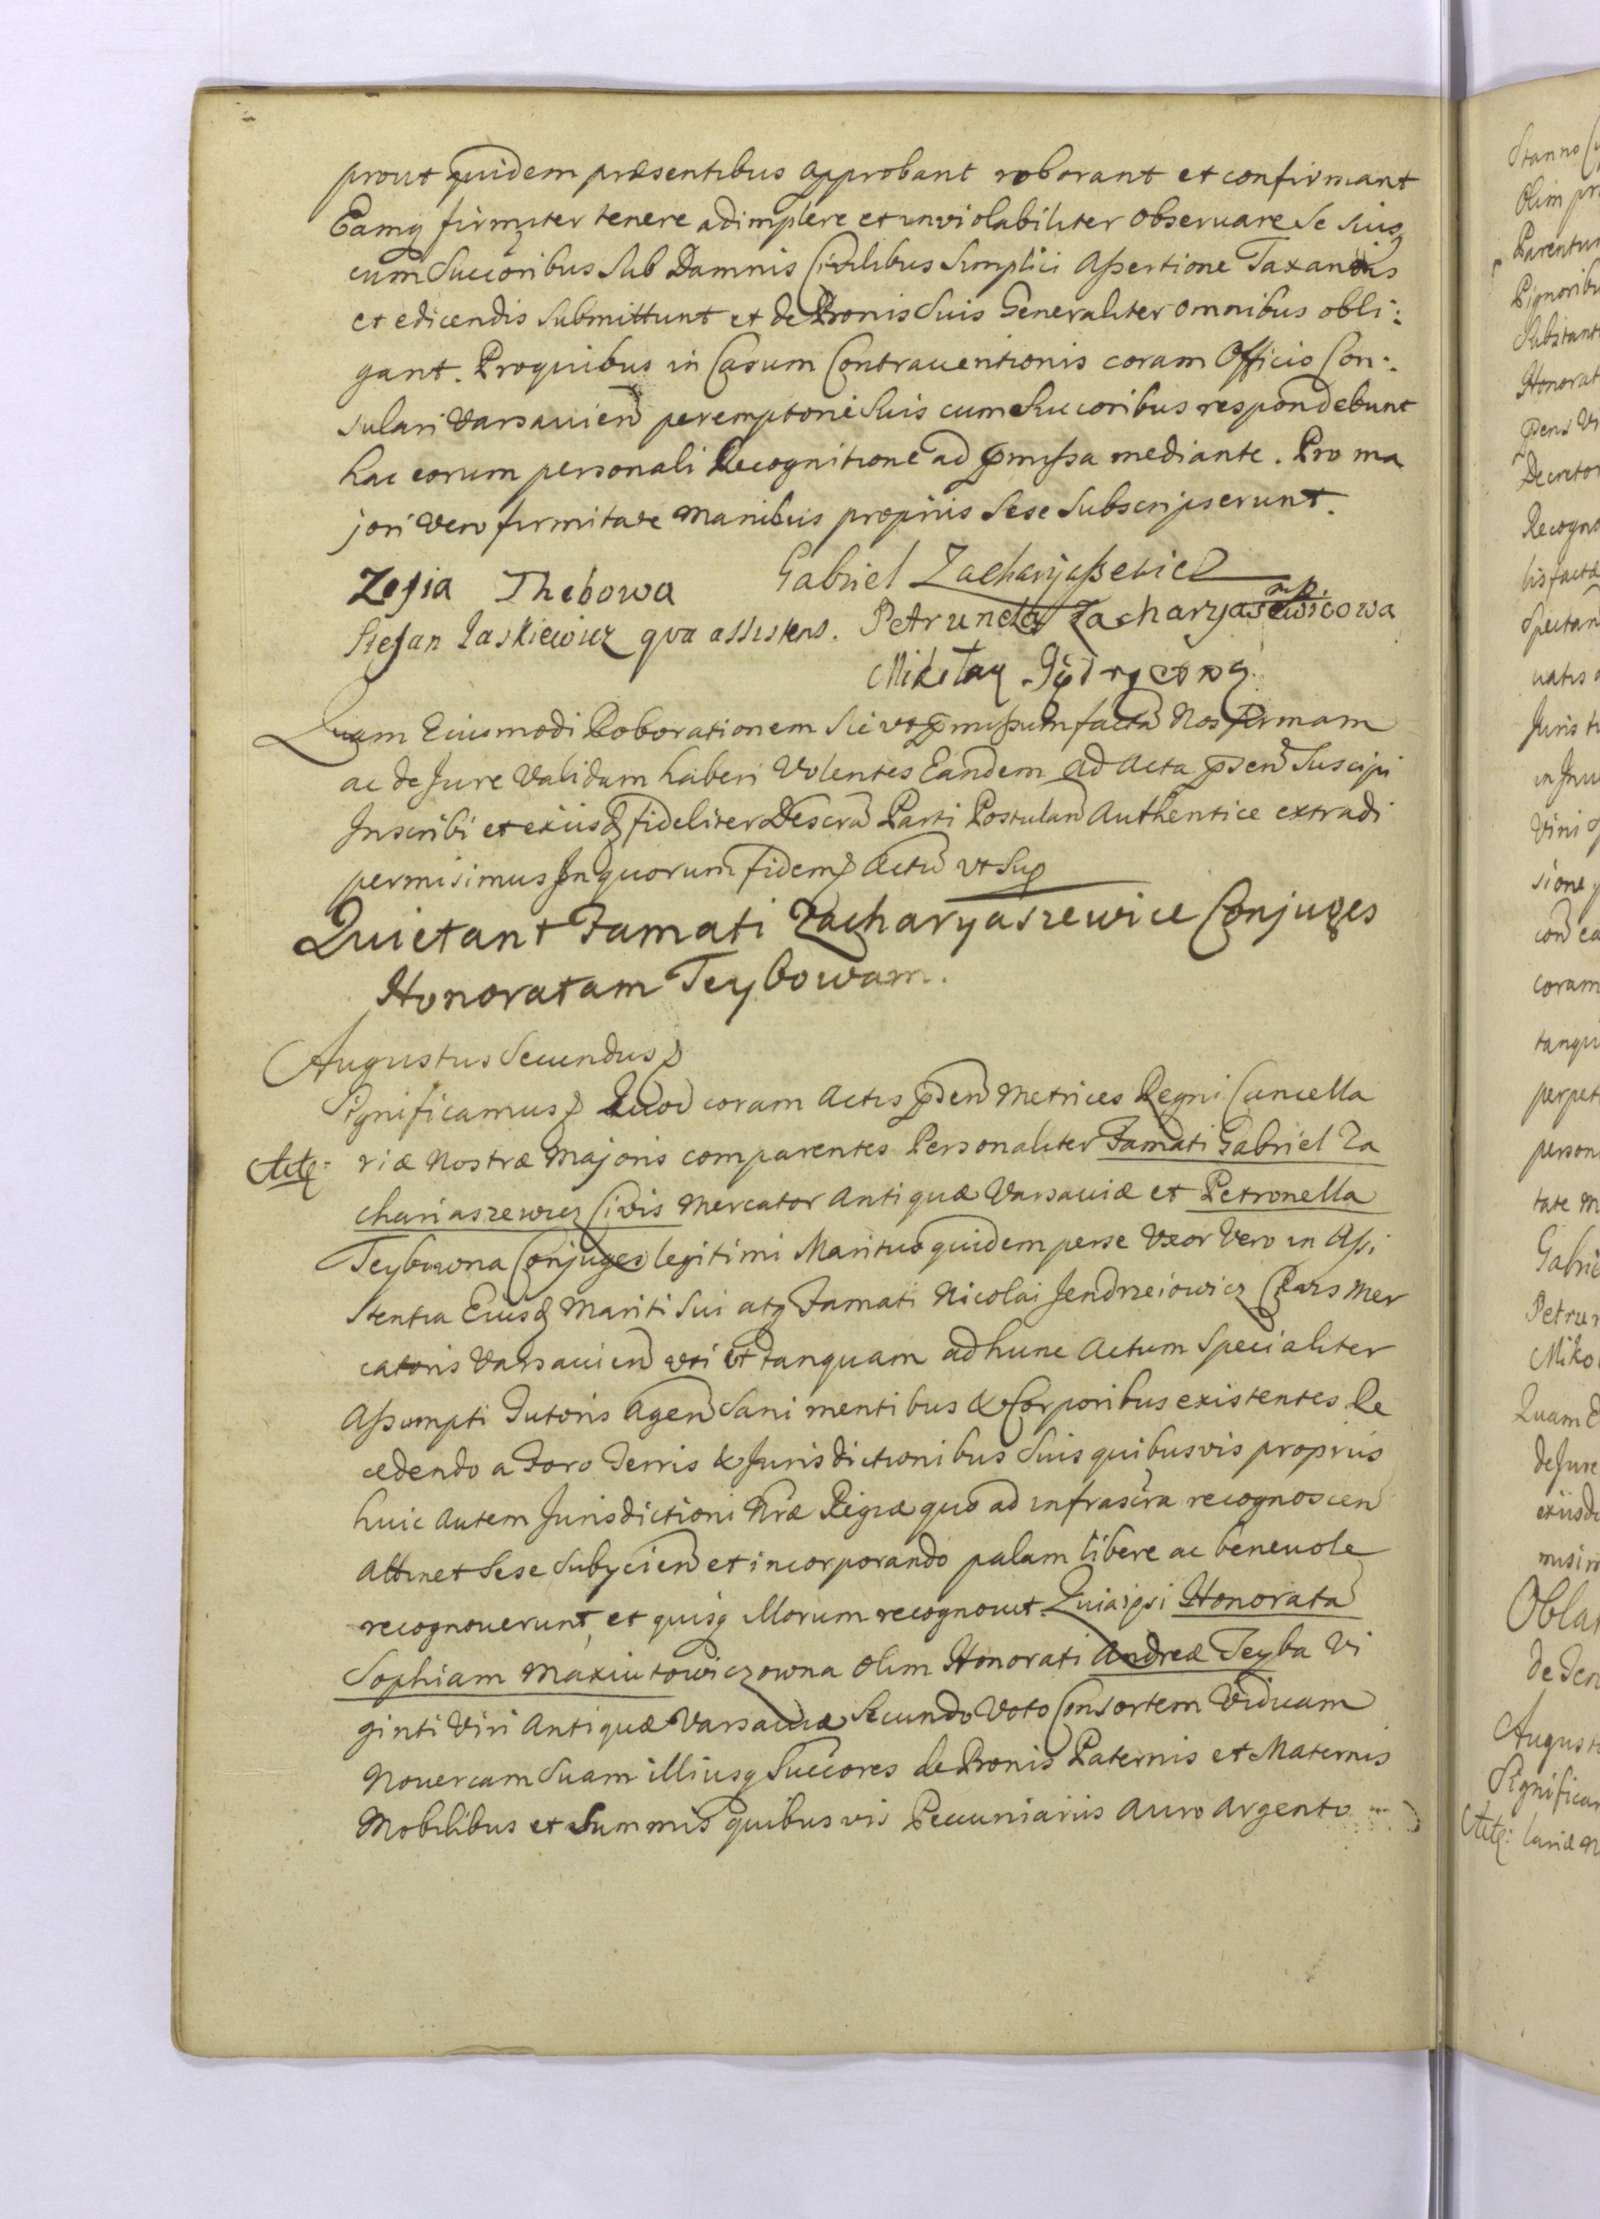 prout quidem præsentibus approbant roborant et confirmant
Eamq firmiter tenere adimplere et inviolabiliter observare Se Suisq
cum Succoribus Sub Damnis Civilibus Simplici Assertione Taxandis
et edicendis Submittunt et de Bonis Suis Generaliter omnibus obli:
gant. Pro quibus in Casum Contraventionis coram Officio Con:
sulari Varsavien peremptorie Suis cum Succoribus respondebunt
hac eorum personali Recognitione ad pmissa mediante. Pro ma
jori vero firmitate Manibus propriis Sese Subscripserunt.
Zofia Thebowa Gabriel Zacharyaszewicz
Stefan Jaskiewicz qva assistens. Petrunela Zacharyasewicowa
Mikołay
Quam Eiusmodi Roborationem Sic vt pmissum facta Nos firmam
ac de Jure Validam haberi Volentes Eandem ad Acta psen Suscipi
Inscribi et exiisd fideliter Descra Parti Postulan Authentice extradi
permisimus In quorum fidem Actu vt Sup
Quietant Famati Zacharyaszewice Conjuges
Honoratam Teybowam.
Augustus Secundus
Significamus Quod coram Actis psen Metrices Regni Cancella
riæ Nostræ Majoris comparentes Personaliter Famati Gabriel Za
chariaszewicz Civis Mercator Antiquæ Varsaviæ et Petronella
Teybowna Conjuges legitimi Maritus quidem per se Vxor Vero in Assi
stentia Eiusd Mariti Sui atq Famati Nicolai Jendrzeiowicz Civis Mer
catoris Varsavien vti et tanquam ad hunc Actum Specialiter
Assumpti Tutoris Agen Sani mentibus & Corporibus existentes Re
cedendo a Foro Terris & Jurisdictionibus Suis quibusvis propriis
huic autem Jurisdictioni Nræ Regiæ quo ad infrascra recognoscen
attinet Sese Subycien et incorporando palam libere ac benevole
recognoverunt, et quisq Illorum recognovit. Quia ipsi Honorata
Sophiam Maxiutowiczowna olim Honorati Andreæ Teyba Vi
ginti Viri Antiquæ Varsaviæ Secundo Voto Consortem Viduam
Novercam Suam illiusq Succores de Bonis Paternis et Maternis
Mobilibus et Summis quibusvis Pecuniariis Auro Argento